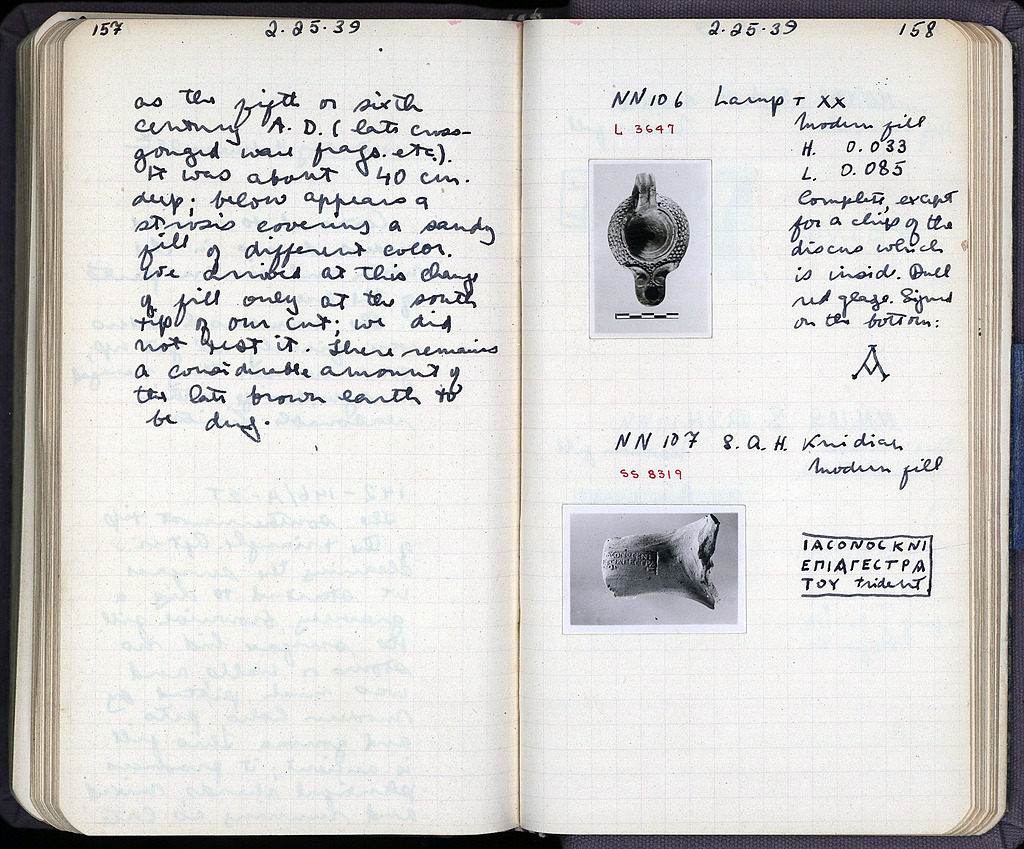 157
2.25.39
as the fifth or sixth
century A.D. (late cross-
gouged ware frags. etc.).
It was about 40 cm.
deep; below appears a
strosis covering a sandy
fill of different color.
We arrived at this change
of fill only at the south
tip of our cut; we did
not test it. There remains
a considerable amount of
this late brown earth to
be dug.
2.25.39
158
NN 106 Lamp T XX
L 3647
Modern fill
H. 0.033
L. 0.085
Complete, except
for a chip of the
discus which
is inside. Dull
red glaze. Signed
on the bottom:
NN 107 S.A.H. Knidian
SS 8319
Modern fill
ΙΑϹΟΝΟϹΚΝΙ
ΕΠΙΑΓΕϹΤΡΑ
ΤΟΥ trident